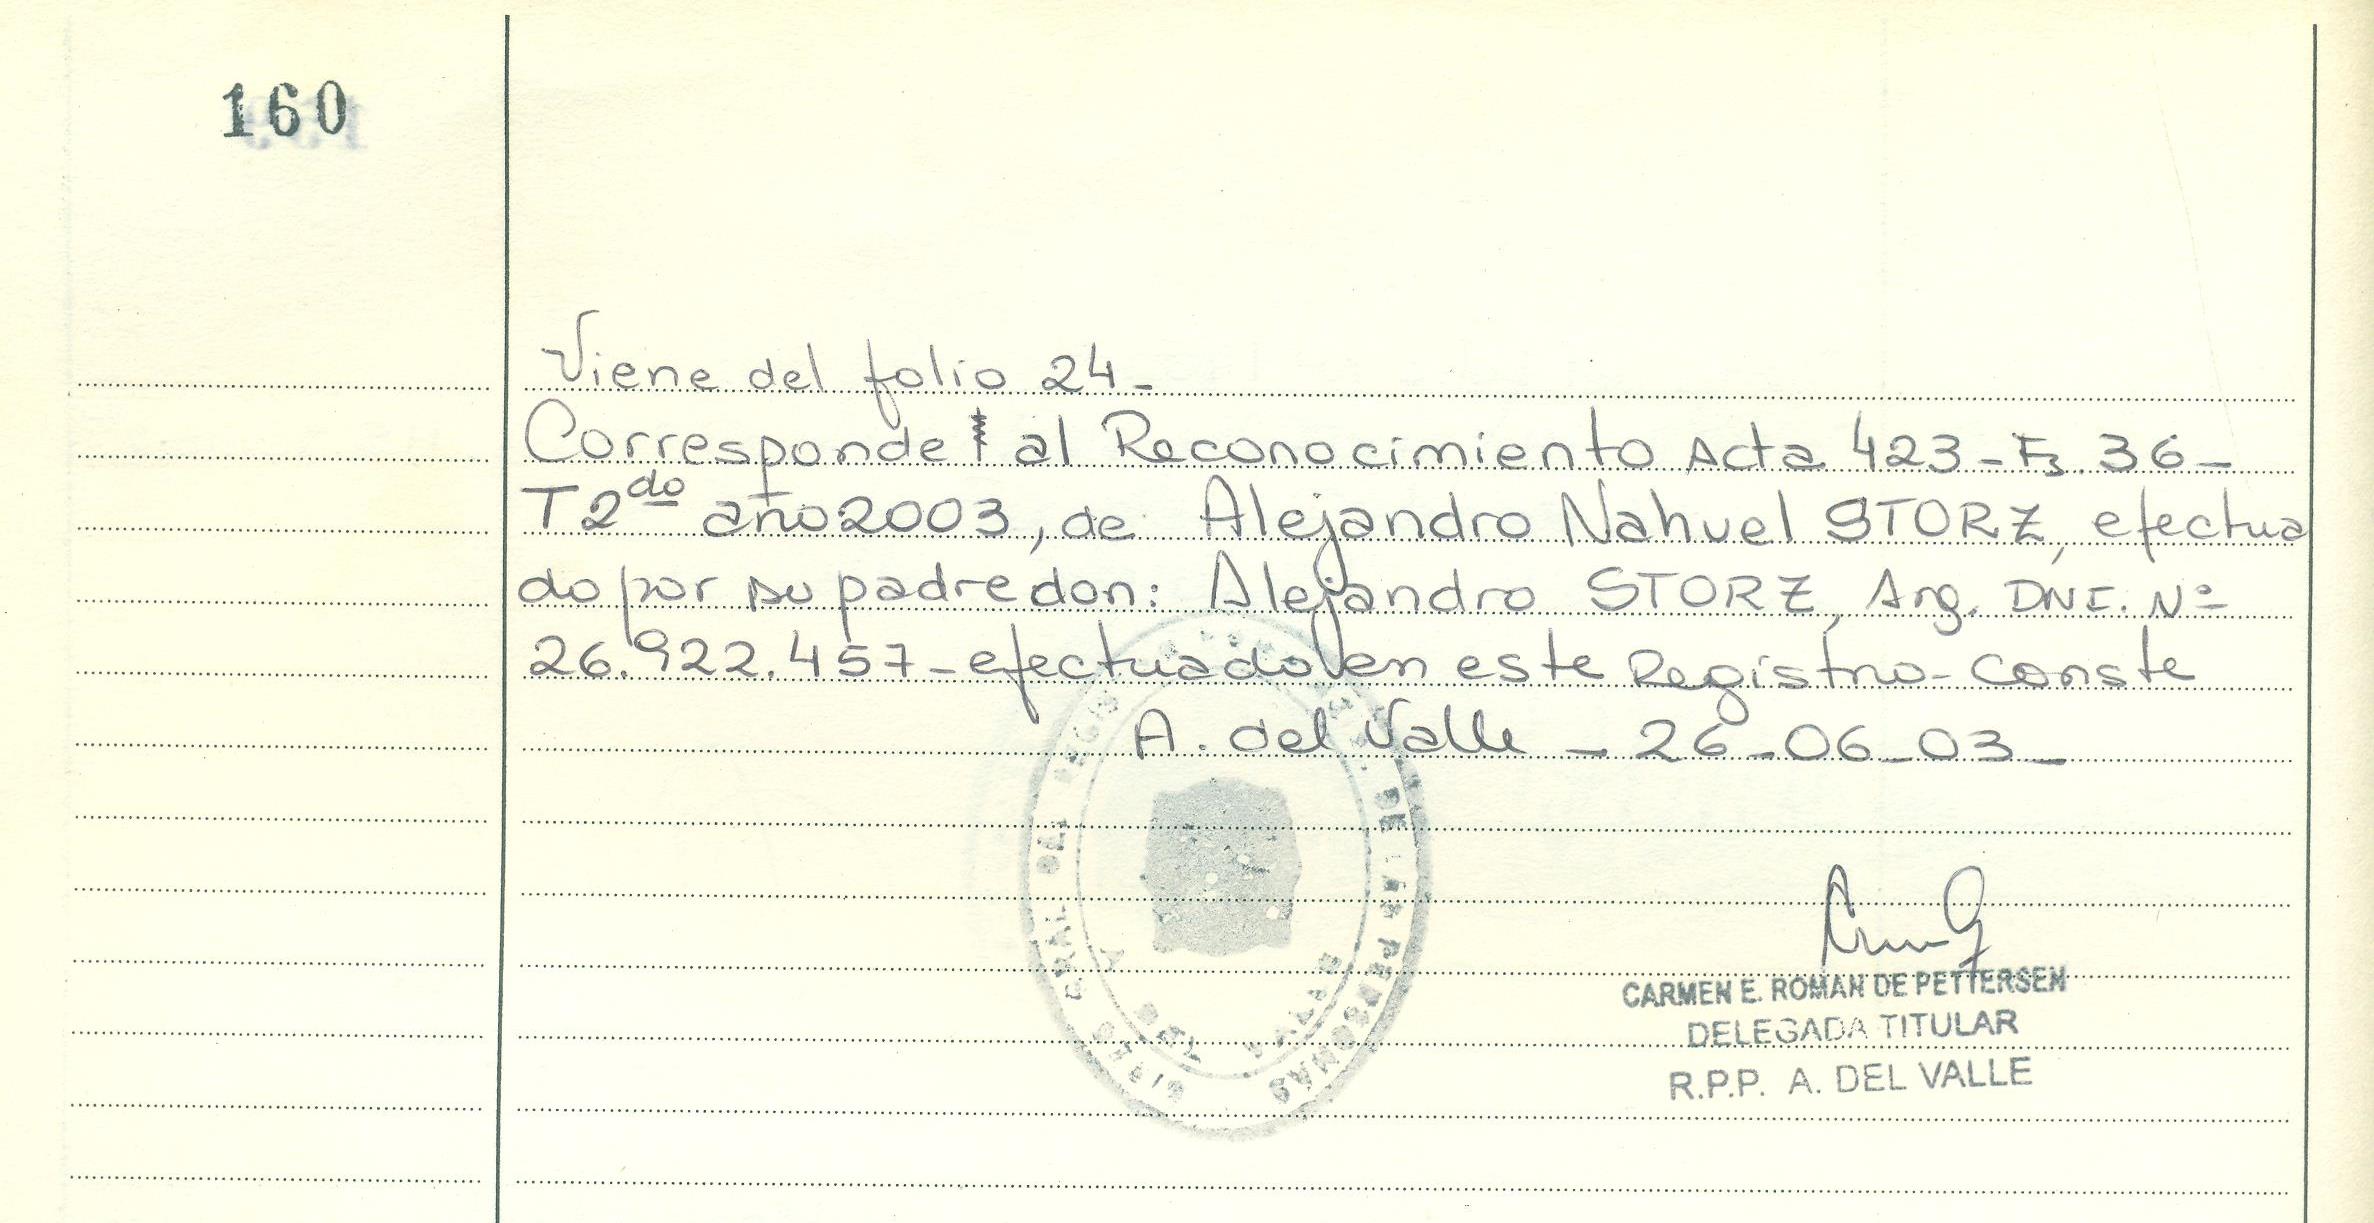 160
Viene del folio 24-
Corresponde al Reconocimiento Acta 423-Fs 36-
T 2do año 2003, de Alejandro Nahuel STORZ, efectua
do por su padre don: Alejandro STORZ, Arg. DNI. Nº
26.922.457-efectuado en este Registro-Conste
A. del Valle - 26-06-03-
CARMEN E. ROMAN DE PETTERSEN
DELEGADA TITULAR
R.P.P. A. DEL VALLE
DE LAS PERSONAS